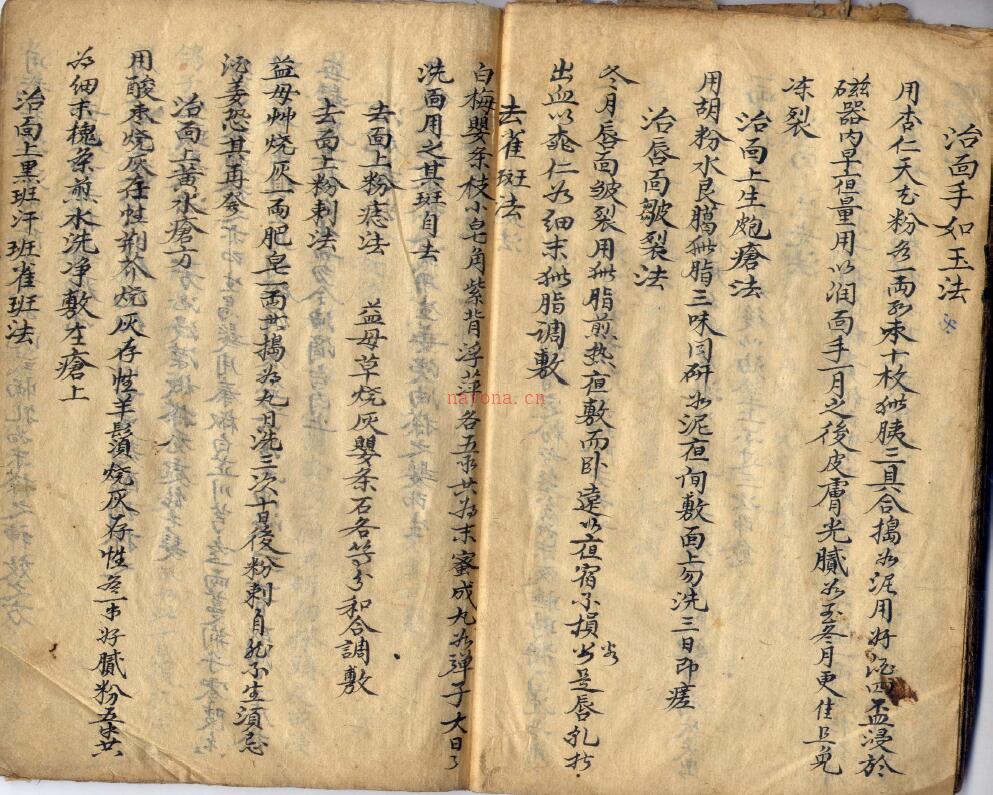 治面手如玉法
用杏仁天花粉各一両红枣十枚猪胰三具合搗如泥用好酒四盃浸於
磁器内早但量用以润面手一月之後皮膚光膩如玉冬月更佳且免
冻裂
治面上生皰瘡法
用胡粉水艮臈猪脂三味同研如泥夜间敷面上勿洗三日即瘥
治唇面皺裂法
冬月唇面皱裂用猪脂煎热夜敷而卧遠以夜宿不損
出血以桃仁为细末猪脂調敷
去雀斑法
白梅嬰条枝小皂角紫背浮萍各五錢共为末蜜成丸如弹子大日日
洗面用之其斑自去
去面上粉痣法
益母草烧灰嬰条石各等分和合調敷
去面上粉刺法
益母艸烧灰一両肥皂一両共搗为丸日洗三次十日後粉刺自然不生須忌
酒姜恐其再發
治面上黄水瘡方
用酸枣烧灰存性荆芥烧灰存性羊鬚烧灰存性各一錢好膩粉五錢共
为细末槐条煎水洗净敷在瘡上
治面上黑班汗班雀班法
nayona.cn